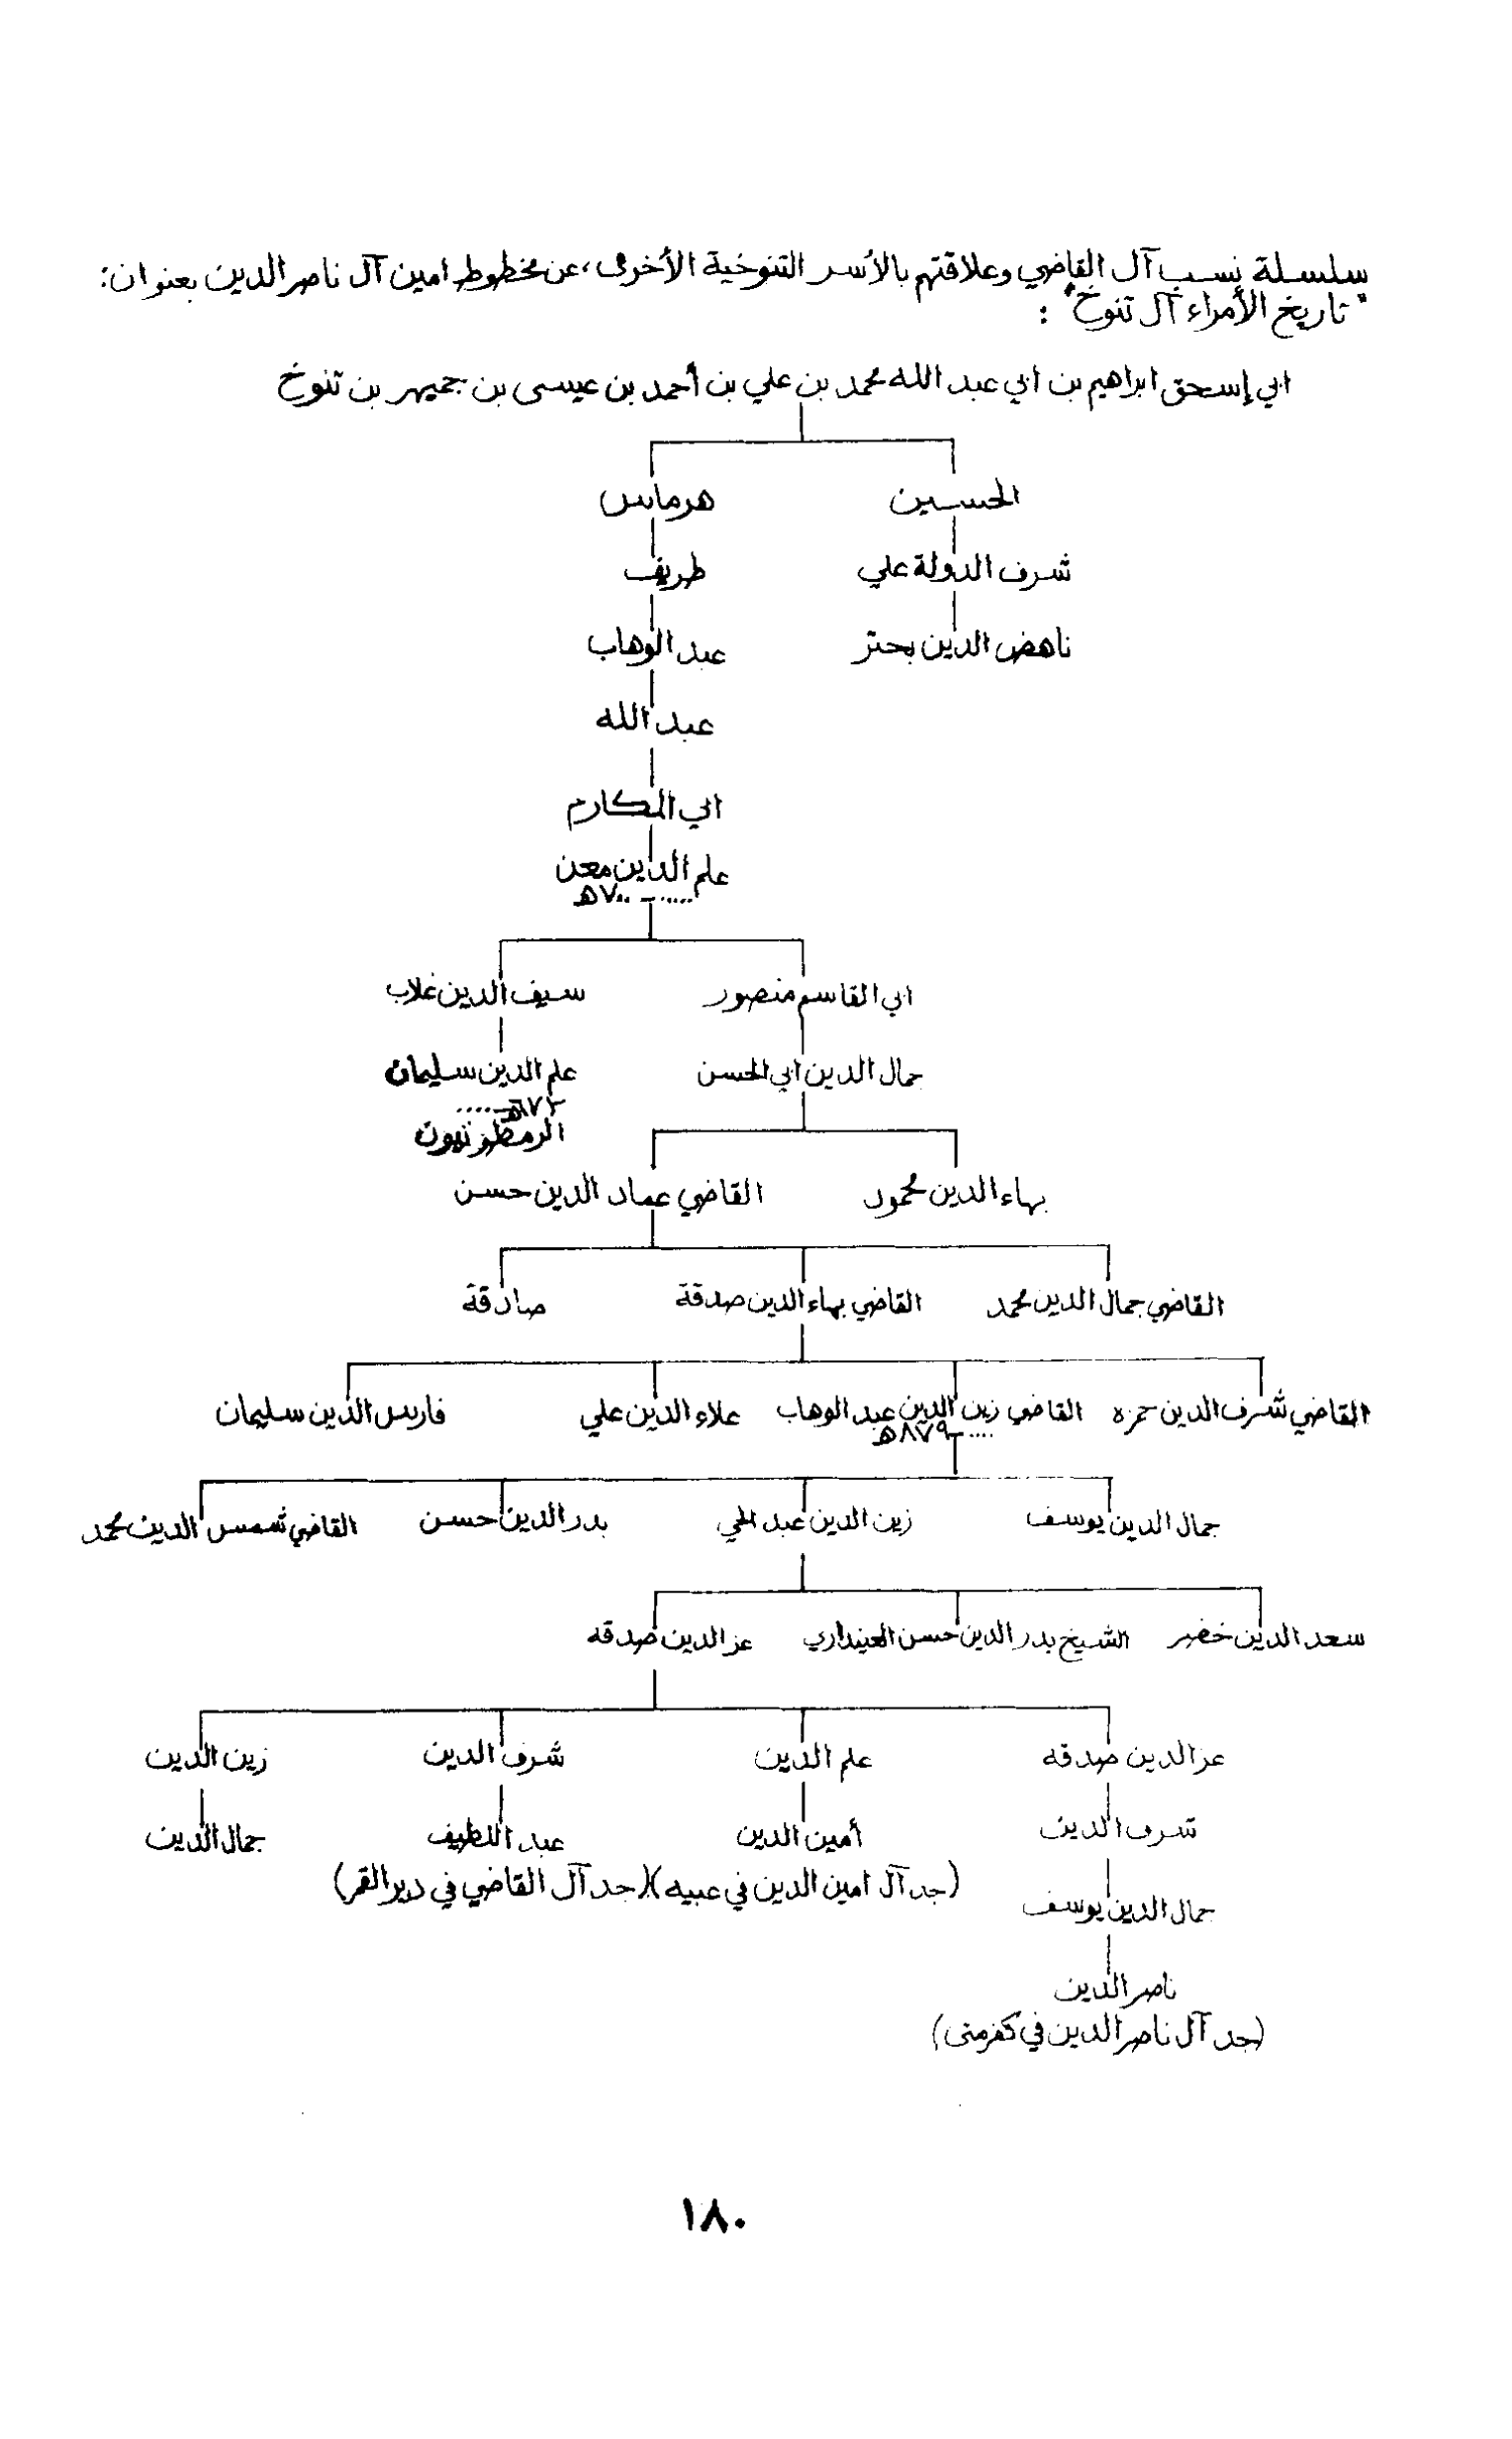 سلسلة نسب آل القاضي وعلاقتهم بالأسر التنوخية الأخرى، عن مخطوط امين آل ناصر الدين بعنوان:
"تاريخ الأمراء آل تنوخ" :
ابي إسحق ابراهيم بن ابي عبد الله محمد بن علي بن أحمد بن عيسى بن جميهر بن تنوخ
الحسين هرماس
شرف الدولة علي طريف
ناهض الدين بحتر عبد الوهاب
عبد الله
ابي المكارم
علم الدين معن
..... - ٧٠٠ هـ
ابي القاسم منصور سيف الدين غلاب
جمال الدين ابي الحسن علم الدين سليمان
الرمطونيون
بهاء الدين محمود القاضي عماد الدين حسن
القاضي جمال الدين محمد القاضي بهاء الدين صدقة صادقة
القاضي شرف الدين حمزه القاضي زين الدين عبد الوهاب علاء الدين علي فارس الدين سليمان
.... - ٨٧٩ هـ
جمال الدين يوسف زين الدين عبد الحي بدر الدين حسن القاضي شمس الدين محمد
سعد الدين خضر الشيخ بدر الدين حسن العينداري عز الدين صدقه
عز الدين صدقه علم الدين شرف الدين زين الدين
شرف الدين أمين الدين عبد اللطيف جمال الدين
(جد آل امين الدين في عبيه) (جد آل القاضي في دير القمر)
جمال الدين يوسف
ناصر الدين
(جد آل ناصر الدين في كفرمتى)
١٨٠